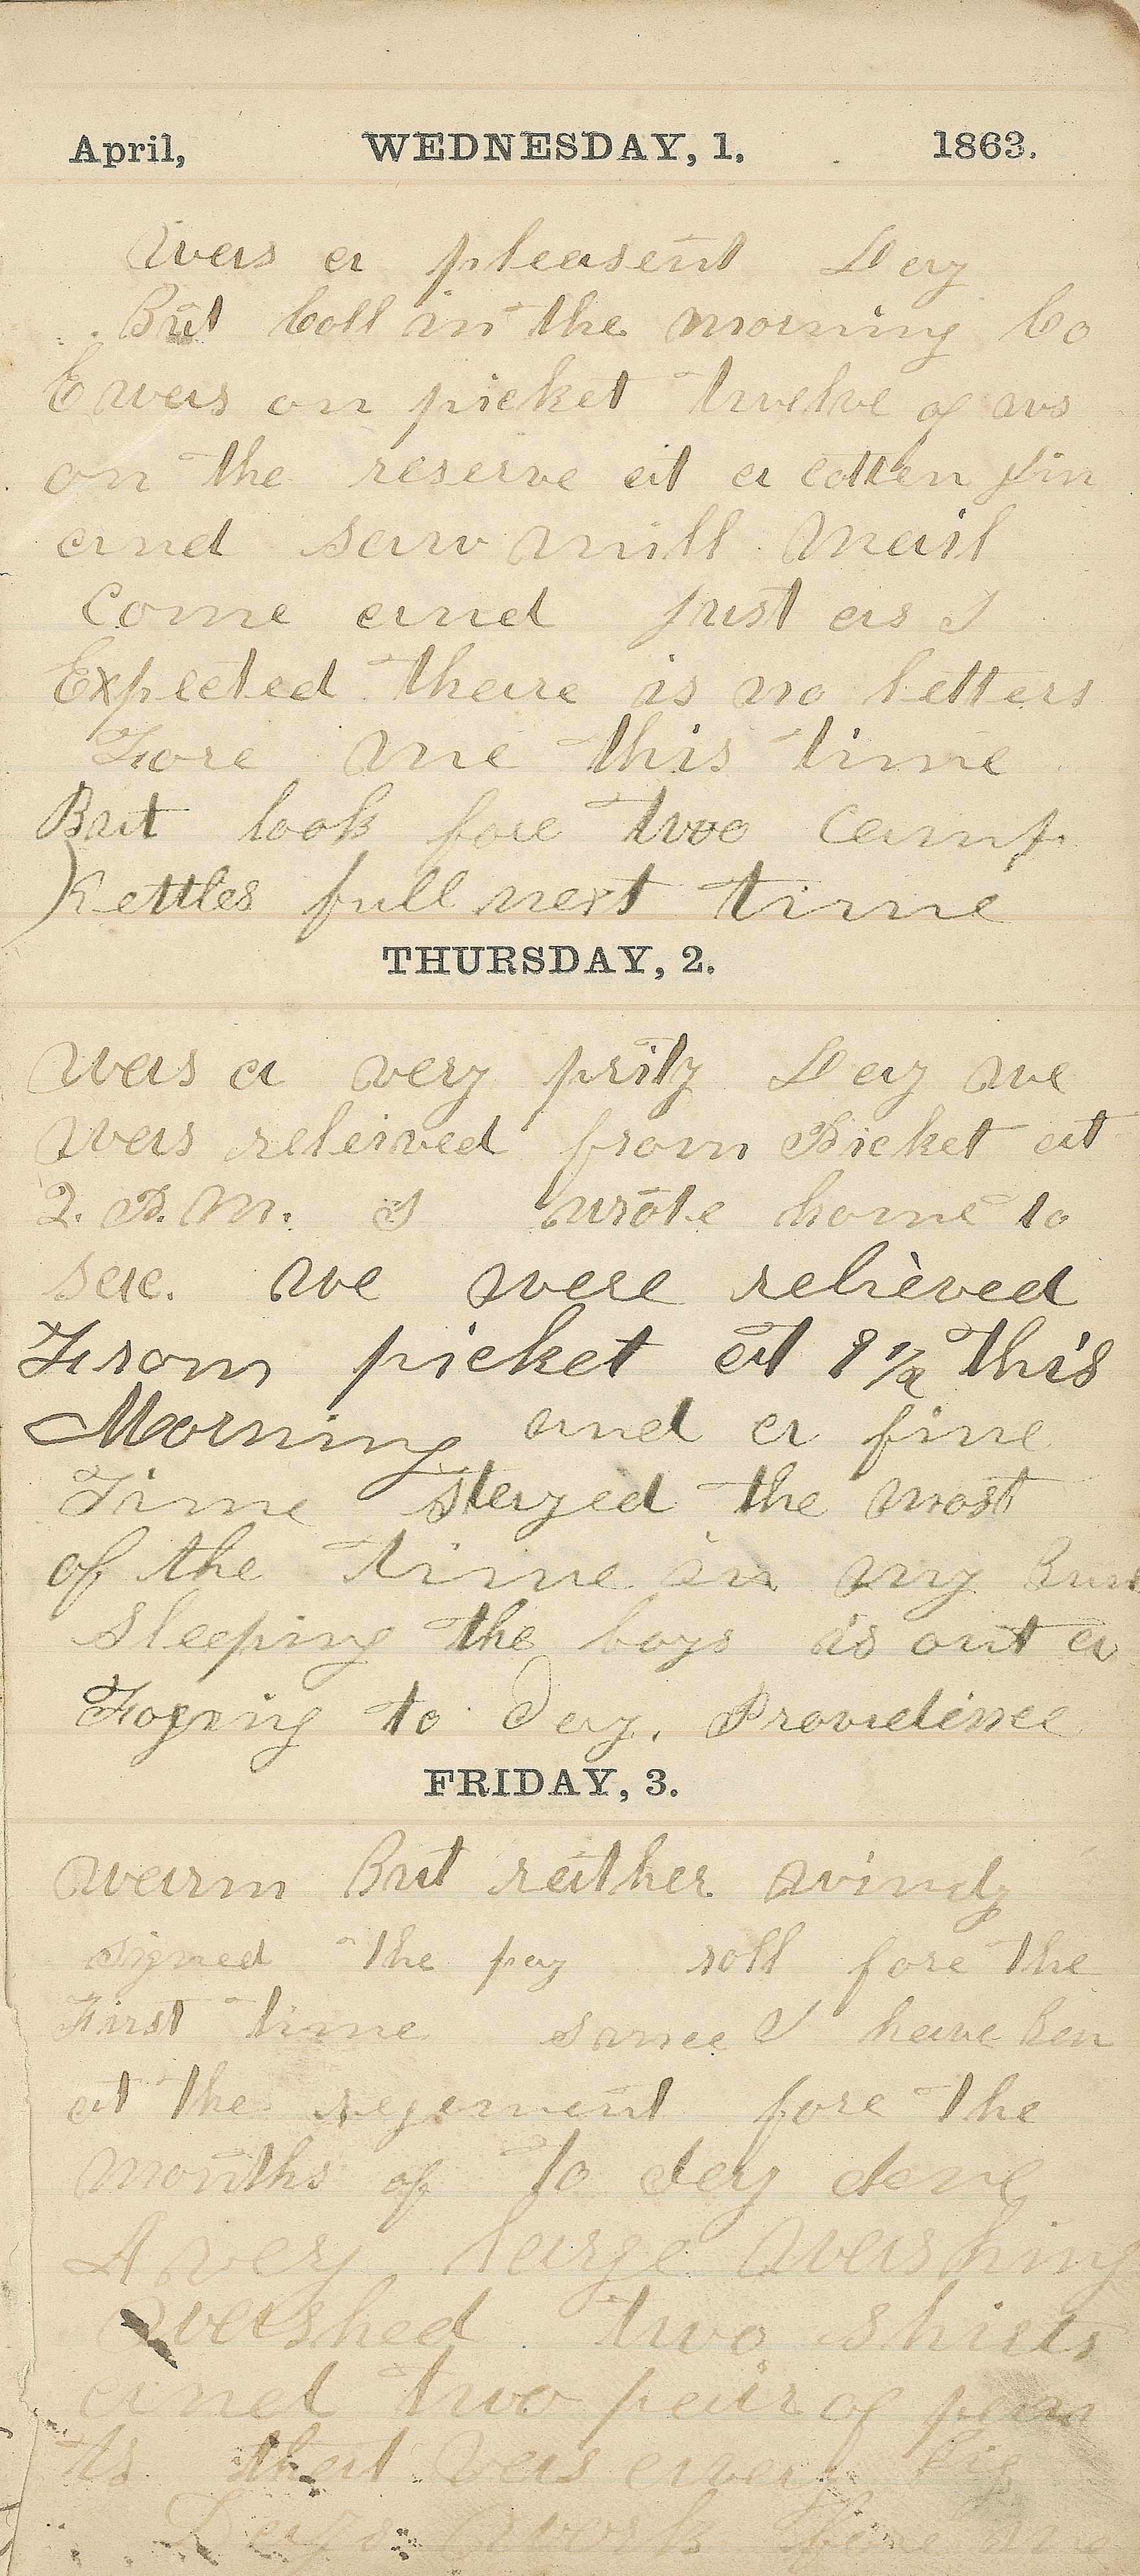 April, WEDNESDAY, 1. 1863.
Was a pleasent Day
But Coll in the morning Co
E was on picket twelve of us
on the reserve at a cotten Jin
and saw mill Mail
Come and just as I
Expected thare is no letters
Fore me this time
But look fore two Camp
Kettles full next time
THURSDAY, 2.
Was a very prity Day we
Was releived from Picket at
2. P. M. I wrote home to
see. we were relieved
From picket at 8 1/2 this
Morning and a fine
Time stayed the most
of the time in my Bun
Sleeping the boys is out a
Foging to Day. Providince
FRIDAY, 3.
Warm But rather windy
Signed the pay roll fore the
First time since I have ben
at the regement fore the
months of to day done
A very large washing
Washed two shirts
and two pair of pan
ts that was a very big
Days work fore me